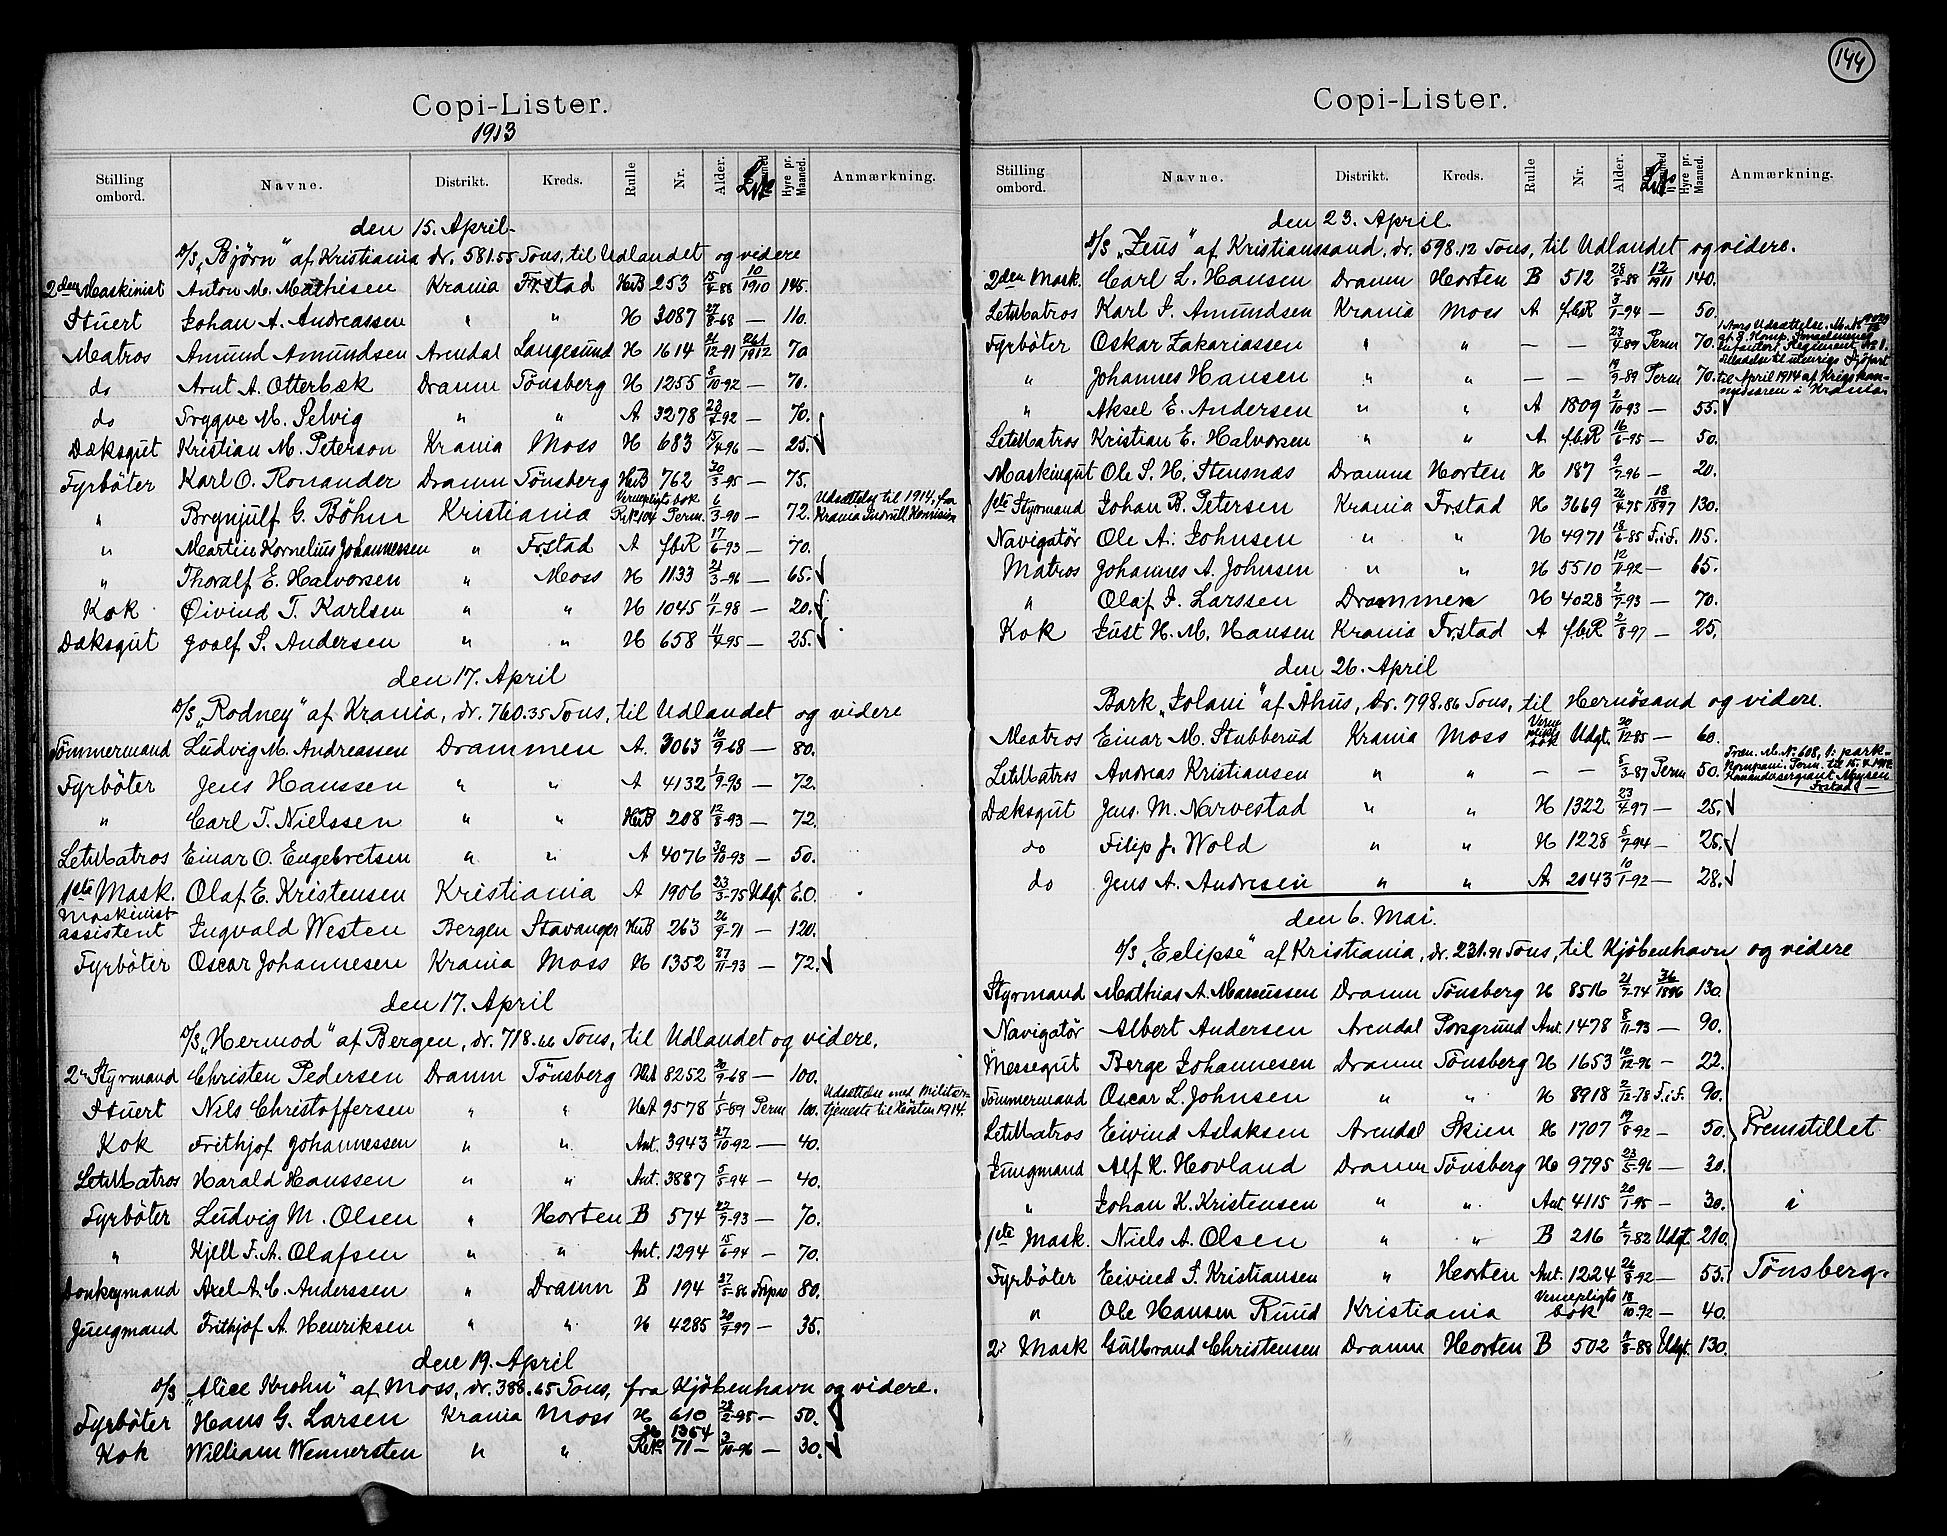 Copi-Lister.
1913
Stilling ombord. Navne. Distrikt. Kreds. Rulle Nr. Alder. Hyre pr. Maaned. Anmærkning.
den 15. April
D/S „Björn" af Kristiania dr. 581.55 Tons, til Udlandet og videre
2den Maskinist Anton M. Mathisen Krania Frstad HuB 253 15/5-88 10/1910 145.
Stuert Johan A. Andreassen " " H 3087 27/8-68 — 110.
Matros Amund Amundsen Arendal Langesund H 1614 21/12-91 261/1912 70
do Arnt A. Otterbæk Dramn Tönsberg H 1255 8/10-92 — 70.
do Trygve M. Selvig " " A 3278 23/7-92 — 70.
Dæksgut Kristian M. Peterson Krania Moss H 683 15/4-96 — 25.
Fyrböter Karl O. Ronander Dramn Tönsberg HuB 762 30/3-95 — 75.
" Brynjulf G. Böhm Kristiania Vernepligts bok Rk. 104 Perm. 6/3-90 — 72. Udsættelse til 1914, fra Krania Indrull Komision
" Martin Kornelius Johannessen " Frstad A fbR 17/6-93 — 70.
" Thoralf E. Halvorsen " Moss H 1133 21/3-96 — 65.
Kok Øivind T. Karlsen " " H 1045 11/1-98 — 20.
Dæksgut Josef S. Andersen " " H 658 11/4-95 — 25.
den 17. April
D/S „Rodney" af Krania, dr. 760.35 Tons, til Udlandet og videre
Tömmermand Ludvig M. Andreassen Drammen A. 3063 10/9-68 — 80.
Fyrböter Jens Hanssen " " A 4132 1/9-93 — 72.
" Carl T. Nielssen " " HuB 208 12/8-93 — 72.
LetMatros Einar O. Engebretsen " " A 4076 30/10-93 — 50.
1ste Mask. Olaf E. Kristensen Kristiania A 1906 23/3-75 Udgt E.O.
Maskinist assistent Ingvald Westen Bergen Stavanger HuB 263 26/9-71 — 120.
Fyrböter Oscar Johannesen Krania Moss H 1352 27/11-93 — 72.
den 17. April
D/S „Hermod" af Bergen, dr. 718.66 Tons, til Udlandet og videre.
2n Styrmand Christen Pedersen Dramn Tönsberg HuA 8252 20/9-68 — 100.
Stuert Nils Christoffersen " " HuA 9578 1/5-89 Perm 100. Udsættelse med Militærtjeneste til Hösten 1914.
Kok Frithjof Johannessen " " Ant. 3943 27/10-92 — 40.
LetMatros Harald Hanssen " " Ant. 3887 5/5-94 — 40.
Fyrböter Ludvig M. Olsen " Horten B 574 22/9-93 — 70.
" Kjell F. A. Olafsen " " Ant. 1294 15/6-94 — 70.
Donkeymand Axel A. C. Anderssen " Dramn B 194 27/5-86 80.
Jungmand Frithjof A. Henriksen " " H 4285 20/9-97 — 35.
den 19. April
D/S „Alice Krohn" af Moss, dr. 388.65 Tons, fra Kjöbenhavn og videre.
Fyrböter Hans G. Larsen Krania Moss H 610 28/2-95 — 50.
Kok William Wennersten " " 36 1364 Rk. 71 — 3/10-96 — 30.
144
Copi-Lister.
Stilling ombord. Navne. Distrikt. Kreds. Rulle Nr. Alder. Hyre pr. Maaned. Anmærkning.
den 23. April
D/S „Zeus" af Kristianssand, dr. 598.12 Tons, til Udlandet og videre.
2den Mask. Carl L. Hansen Dramn Horten B 512 28/8-88 12/1911 140.
LetMatros Karl J. Amundsen Krania Moss A fbR 3/1-94 — 50.
Fyrböter Oskar Zakariassen " " — — 23/4-89 Perm 70. 1 Aars Udsættelse.
" Johannes Hansen " " — — 19/9-89 Perm 70. til April 1914 af Krigskommissæren i Krania.
" Aksel E. Andersen " " A 1809 2/10-93 — 55.
LetMatros Kristian E. Halvorsen " " A fbR 16/6-95 — 50.
Maskingut Ole S. H. Stensnæs Dramn Horten H 187 9/7-96 — 20.
1ste Styrmand Johan B. Petersen Krania Frstad H 3669 26/4-75 18/1897 130.
Navigatör Ole A. Johnsen " " H 4971 18/6-85 F.i.F. 115.
Matros Johannes A. Johnsen " " H 5510 12/11-92 — 65.
" Olaf J. Larssen Drammen H 4028 2/9-93 — 70.
Kok Just H. M. Hansen Krania Frstad A fbR 2/8-97 — 25.
den 26. April
Bark „Iolani" af Åhus, dr. 798.86 Tons, til Hernösand og videre.
Matros Einar M. Stubberud Krania Moss Vernepligts bok Udgt. 20/12-85 — 60.
LetMatros Andreas Kristiansen " " — — 5/3-87 Perm 50. Træn. M. No 608, 1. parkkompani. Perm. til 15.4.1914 Kommandersergeant Mysen Frstad —
Dæksgut Jens. M. Narvestad " " H 1322 23/4-97 — 25.
do Filip J. Wold " " H 1228 5/7-94 — 25.
do Jens A. Andresen " " A 2043 10/1-92 — 28.
den 6. Mai.
D/S „Eclipse" af Kristiania, dr. 231.91 Tons, til Kjöbenhavn og videre
Styrmand Mathias A. Marcussen Dramn Tönsberg H 8516 21/7-74 36/1896 130.
Navigatör Albert Andersen Arendal Porsgrund Ant. 1478 8/11-93 — 90.
Messegut Berge Johannesen Dramn Tönsberg H 1653 10/12-96 — 22.
Tömmermand Oscar L. Johnsen " " H 8918 2/12-78 F.i.F. 90.
LetMatros Eivind Aslaksen Arendal Skien H 1707 19/8-92 — 50. Fremstillet
Jungmand Alf R. Hovland Dramn Tönsberg H 9795 23/5-96 — 30.
" Johan K. Kristensen " " Ant 4115 20/1-95 — 30. i
1ste Mask. Niels A. Olsen " " B 216 2/7-82 Udgt. 210.
Fyrböter Eivind S. Kristiansen " Horten Ant. 1224 26/8-92 — 55. Tönsberg.
" Ole Hansen Ruud Kristiania Vernepligts bok 18/10-92 — 40.
2n Mask Gulbrand Christensen Dramn Horten B 502 2/8-88 Udgt. 130.